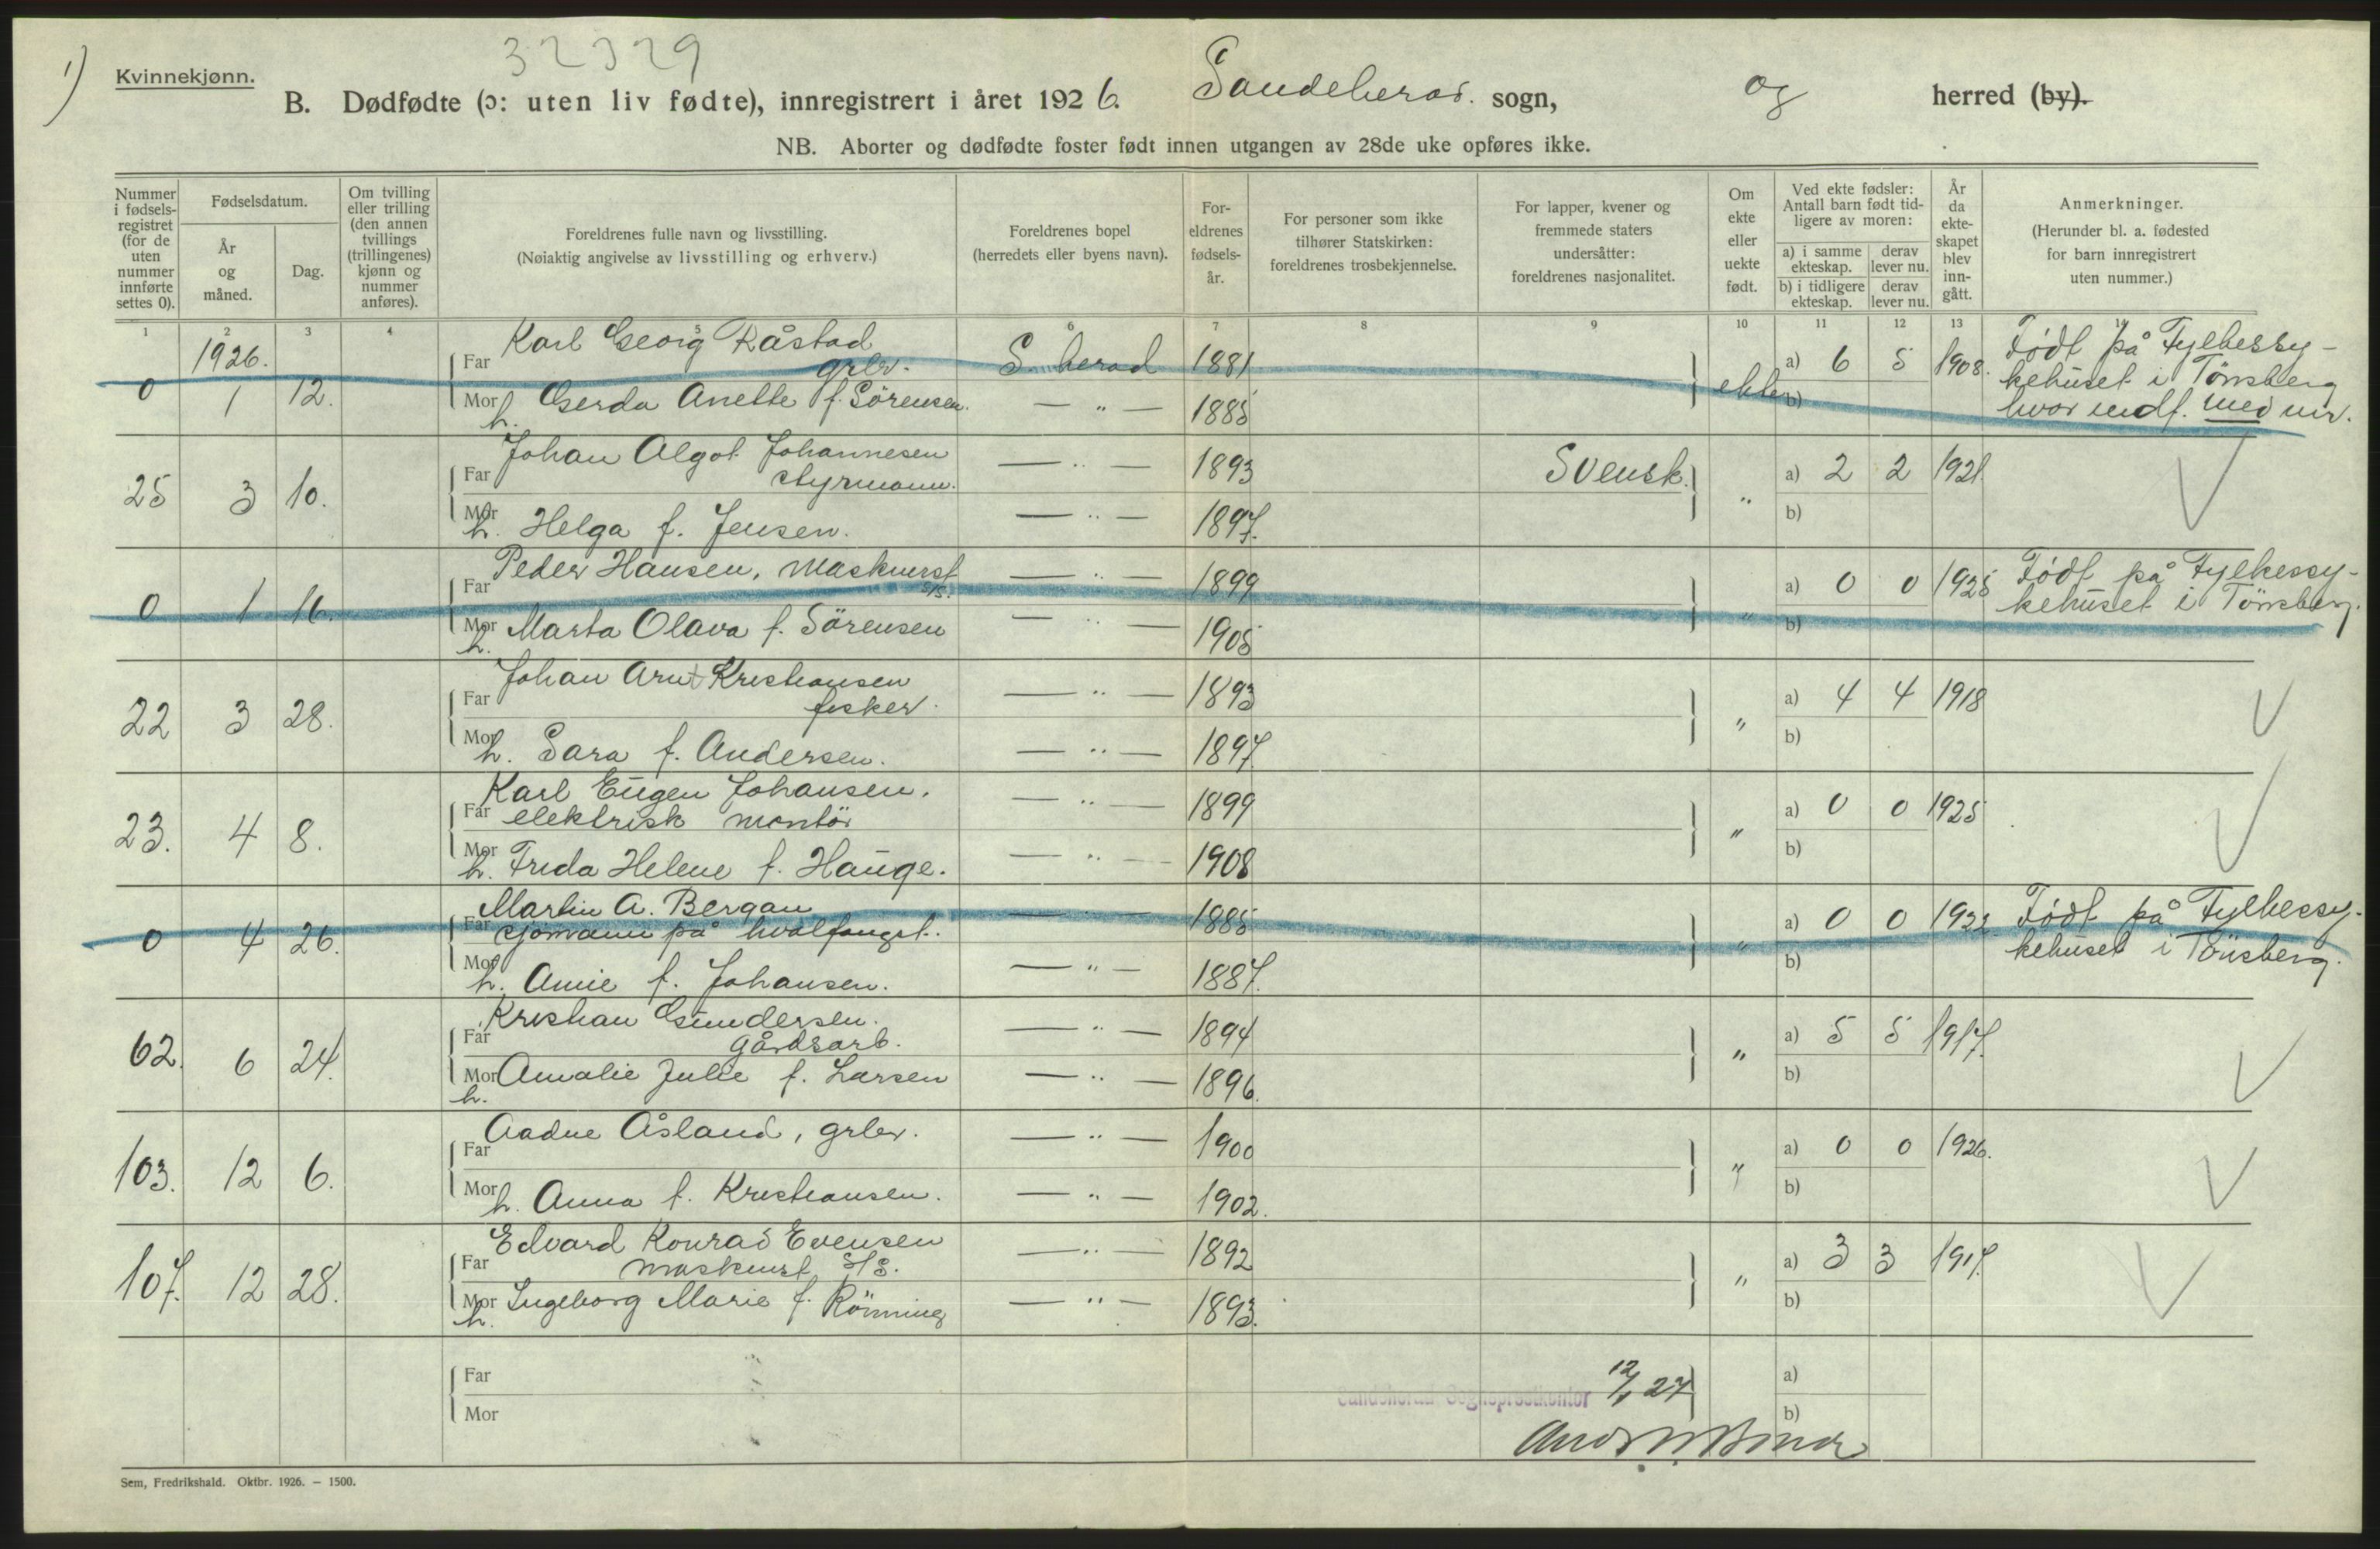 32329
1)
Kvinnekjønn.
B. Dødfødte (ɔ: uten liv fødte), innregistrert i året 1926. Sandeherad. sogn, og herred (by).
NB. Aborter og dødfødte foster født innen utgangen av 28de uke opføres ikke.
Nummer i fødsels-registret (for de uten nummer innførte settes 0).
Fødselsdatum.
År og måned.
Dag.
Om tvilling eller trilling (den annen tvillings (trillingenes) kjønn og nummer anføres).
Foreldrenes fulle navn og livsstilling.
(Nøiaktig angivelse av livsstilling og erhverv.)
Foreldrenes bopel
(herredets eller byens navn).
For-eldrenes fødsels-år.
For personer som ikke tilhører Statskirken: foreldrenes trosbekjennelse.
For lapper, kvener og fremmede staters undersåtter: foreldrenes nasjonalitet.
Om ekte eller uekte født.
Ved ekte fødsler: Antall barn født tid-ligere av moren:
a) i samme ekteskap. derav lever nu.
b) i tidligere ekteskap. derav lever nu.
År da ekte-skapet blev inn-gått.
Anmerkninger.
(Herunder bl. a. fødested for barn innregistrert uten nummer.)
1 2 3 4 5 6 7 8 9 10 11 12 13 14
1926.
Karl Georg Råstad
Far grbr. S. herad 1881 a) 6 5 1908. Født på Fylkessy-
kehuset i Tönsberg
0 1 12. Mor h. Gerda Anette f. Sörensen. — " — 1885 ekte b) hvor indf. med nr.
Johan Algot Johannesen
Far styrmann. — " — 1893 Svensk. a) 2 2 1921.
25 3 10. Mor h. Helga f. Jensen. — " — 1897. " b)
Peder Hansen, maskinist
Far s/s. — " — 1899 a) 0 0 1925 Født på Fylkessy-
kehuset i Tönsberg.
0 1 16. Mor h. Marta Olava f. Sörensen — " — 1905 " b)
Johan Arnt Kristiansen
Far fisker. — " — 1893 a) 4 4 1918
22 3 28. Mor h. Sara f. Andersen. — " — 1897. " b)
Karl Eugen Johansen,
Far elektrisk montör — " — 1899 a) 0 0 1925
23. 4 8. Mor h. Frida Helene f. Hauge. — " — 1908 " b)
Martin A. Bergan
Far sjömann på hvalfangst. — " — 1885 a) 0 0 1922 Født på Fylkessy-
kehuset i Tönsberg.
0 4 26. Mor h. Amie f. Johansen. — " — 1887. " b)
Kristian Gundersen.
Far gårdsarb. — " — 1894 a) 5 5 1917.
62. 6 24. Mor h. Amalie Julie f. Larsen — " — 1896. " b)
Aadne Åsland, grbr.
Far — " — 1900 a) 0 0 1926.
103. 12 6. Mor h. Anna f. Kristiansen. — " — 1902. " b)
Edvard Konrad Evensen
Far maskinist s/s. — " — 1892 a) 3 3 1917.
107. 12 28. Mor h. Ingeborg Marie f. Rönning — " — 1893. " b)
Far a)
Sandeherad Sogneprestkontor 12/1 27
Mor b)
Sem, Fredrikshald. Oktbr. 1926. — 1500.